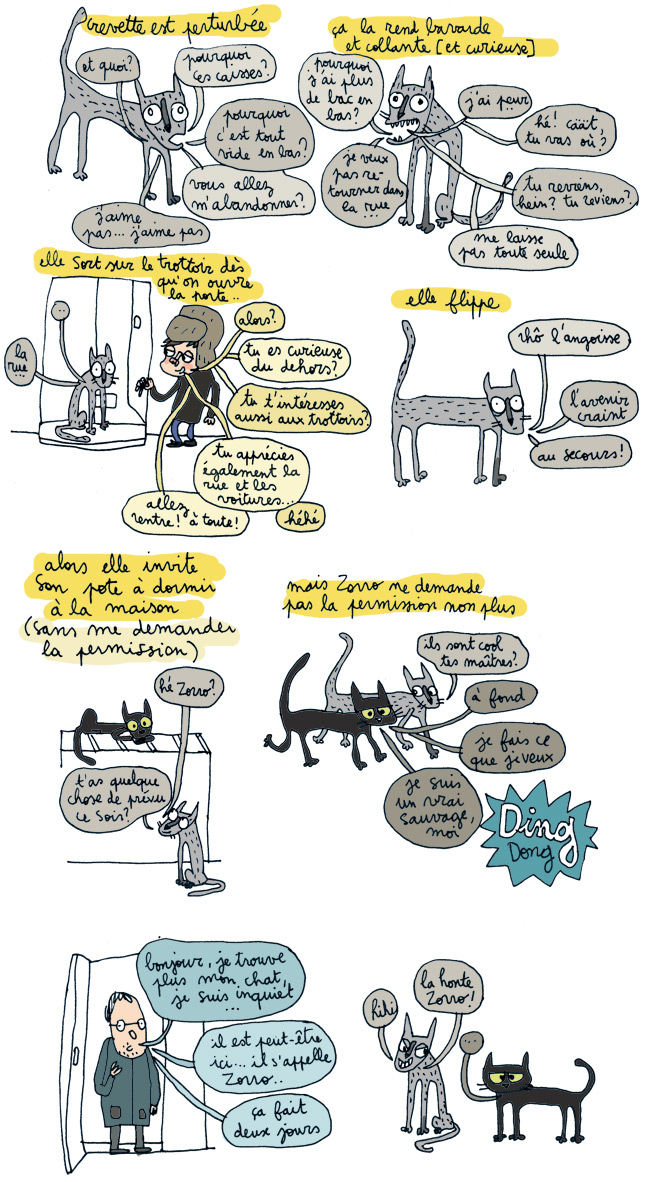 crevette est perturbée
et quoi?
pourquoi
ces caisses?
pourquoi
c'est tout
vide en bas?
vous allez
m'abandonner?
j'aime
pas... j'aime pas
ça la rend bavarde
et collante [et curieuse]
pourquoi
j'ai plus
de bac en
bas?
j'ai peur
hé! cäät,
tu vas où?
je veux
pas re-
tourner dans
la rue
...
tu reviens,
hein? tu reviens?
me laisse
pas toute seule
elle sort sur le trottoir dès
qu'on ouvre
la porte..
...
la
rue
...
alors?
tu es curieuse
du dehors?
tu t'intéresses
aussi aux trottoirs?
tu apprécies
également la
rue et les
voitures...
allez
rentre! à toute!
héhé
elle flippe
rhô l'angoisse
l'avenir
craint
au secours!
alors elle invite
son pote à dormir
à la maison
(sans me demander
la permission)
hé Zorro?
t'as quelque
chose de prévu
ce soir?
mais Zorro ne demande
pas la permission non plus
ils sont cool
tes maîtres?
à fond
je fais ce
que j'veux
je suis
un vrai
sauvage,
moi
Ding
Dong
bonjour, je trouve
plus mon chat,
je suis inquiet
...
il est peut-être
ici... il s'appelle
Zorro..
ça fait
deux jours
hihi
la honte
Zorro!
...